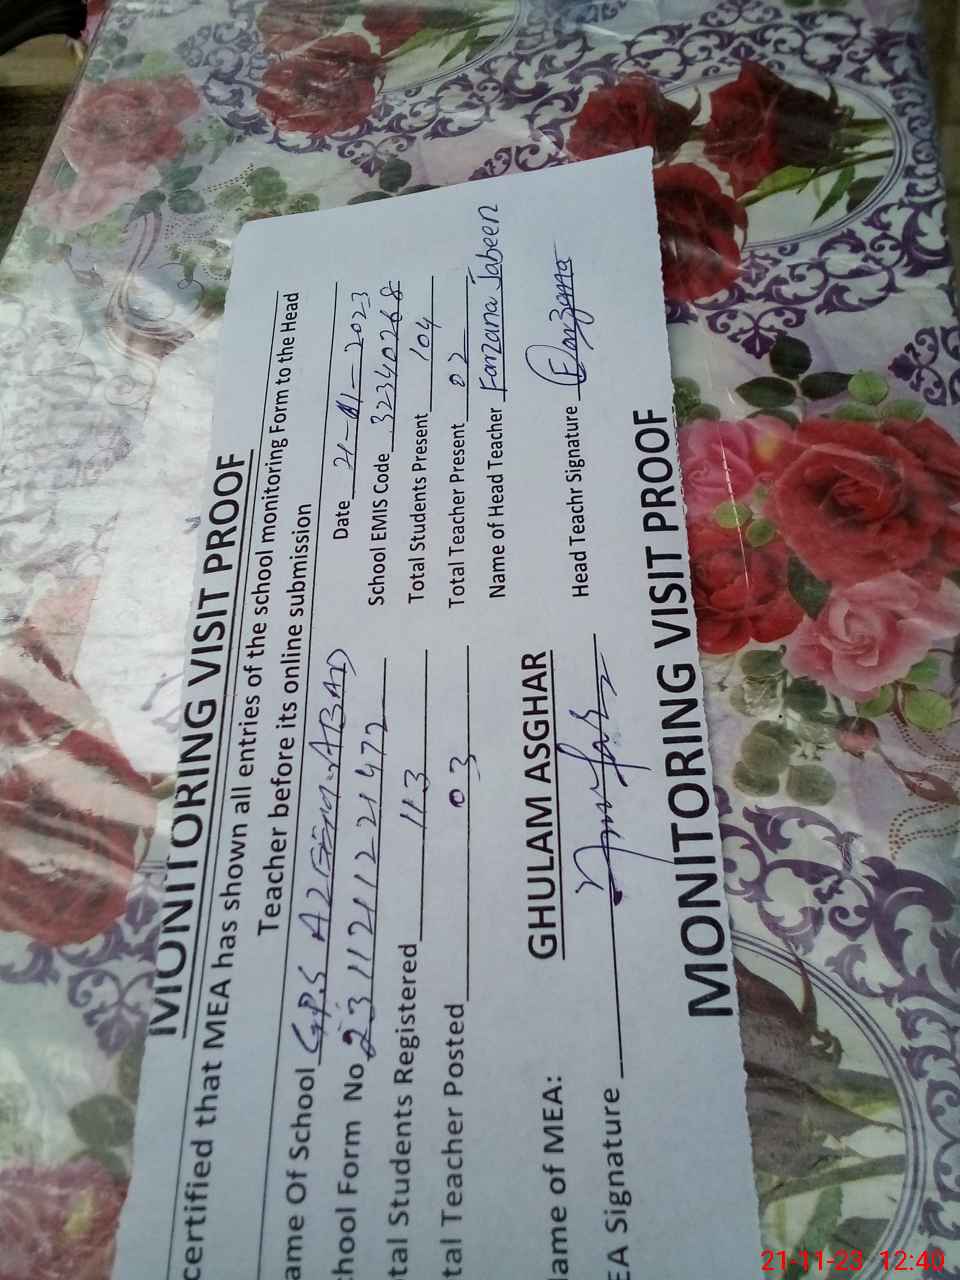 MONITORING VISIT PROOF
certified that MEA has shown all entries of the school monitoring Form to the Head
Teacher before its online submission
ame Of School G.P.S Date 21-11-2023
hool Form No 23112112221472 School EMIS Code 32340268
tal Students Registered 113 Total Students Present 104
tal Teacher Posted 03 Total Teacher Present 02
Name of Head Teacher Farzana Jabeen
ame of MEA: GHULAM ASGHAR
EA Signature Head Teachr Signature Farzana
MONITORING VISIT PROOF
21-11-23 12:40